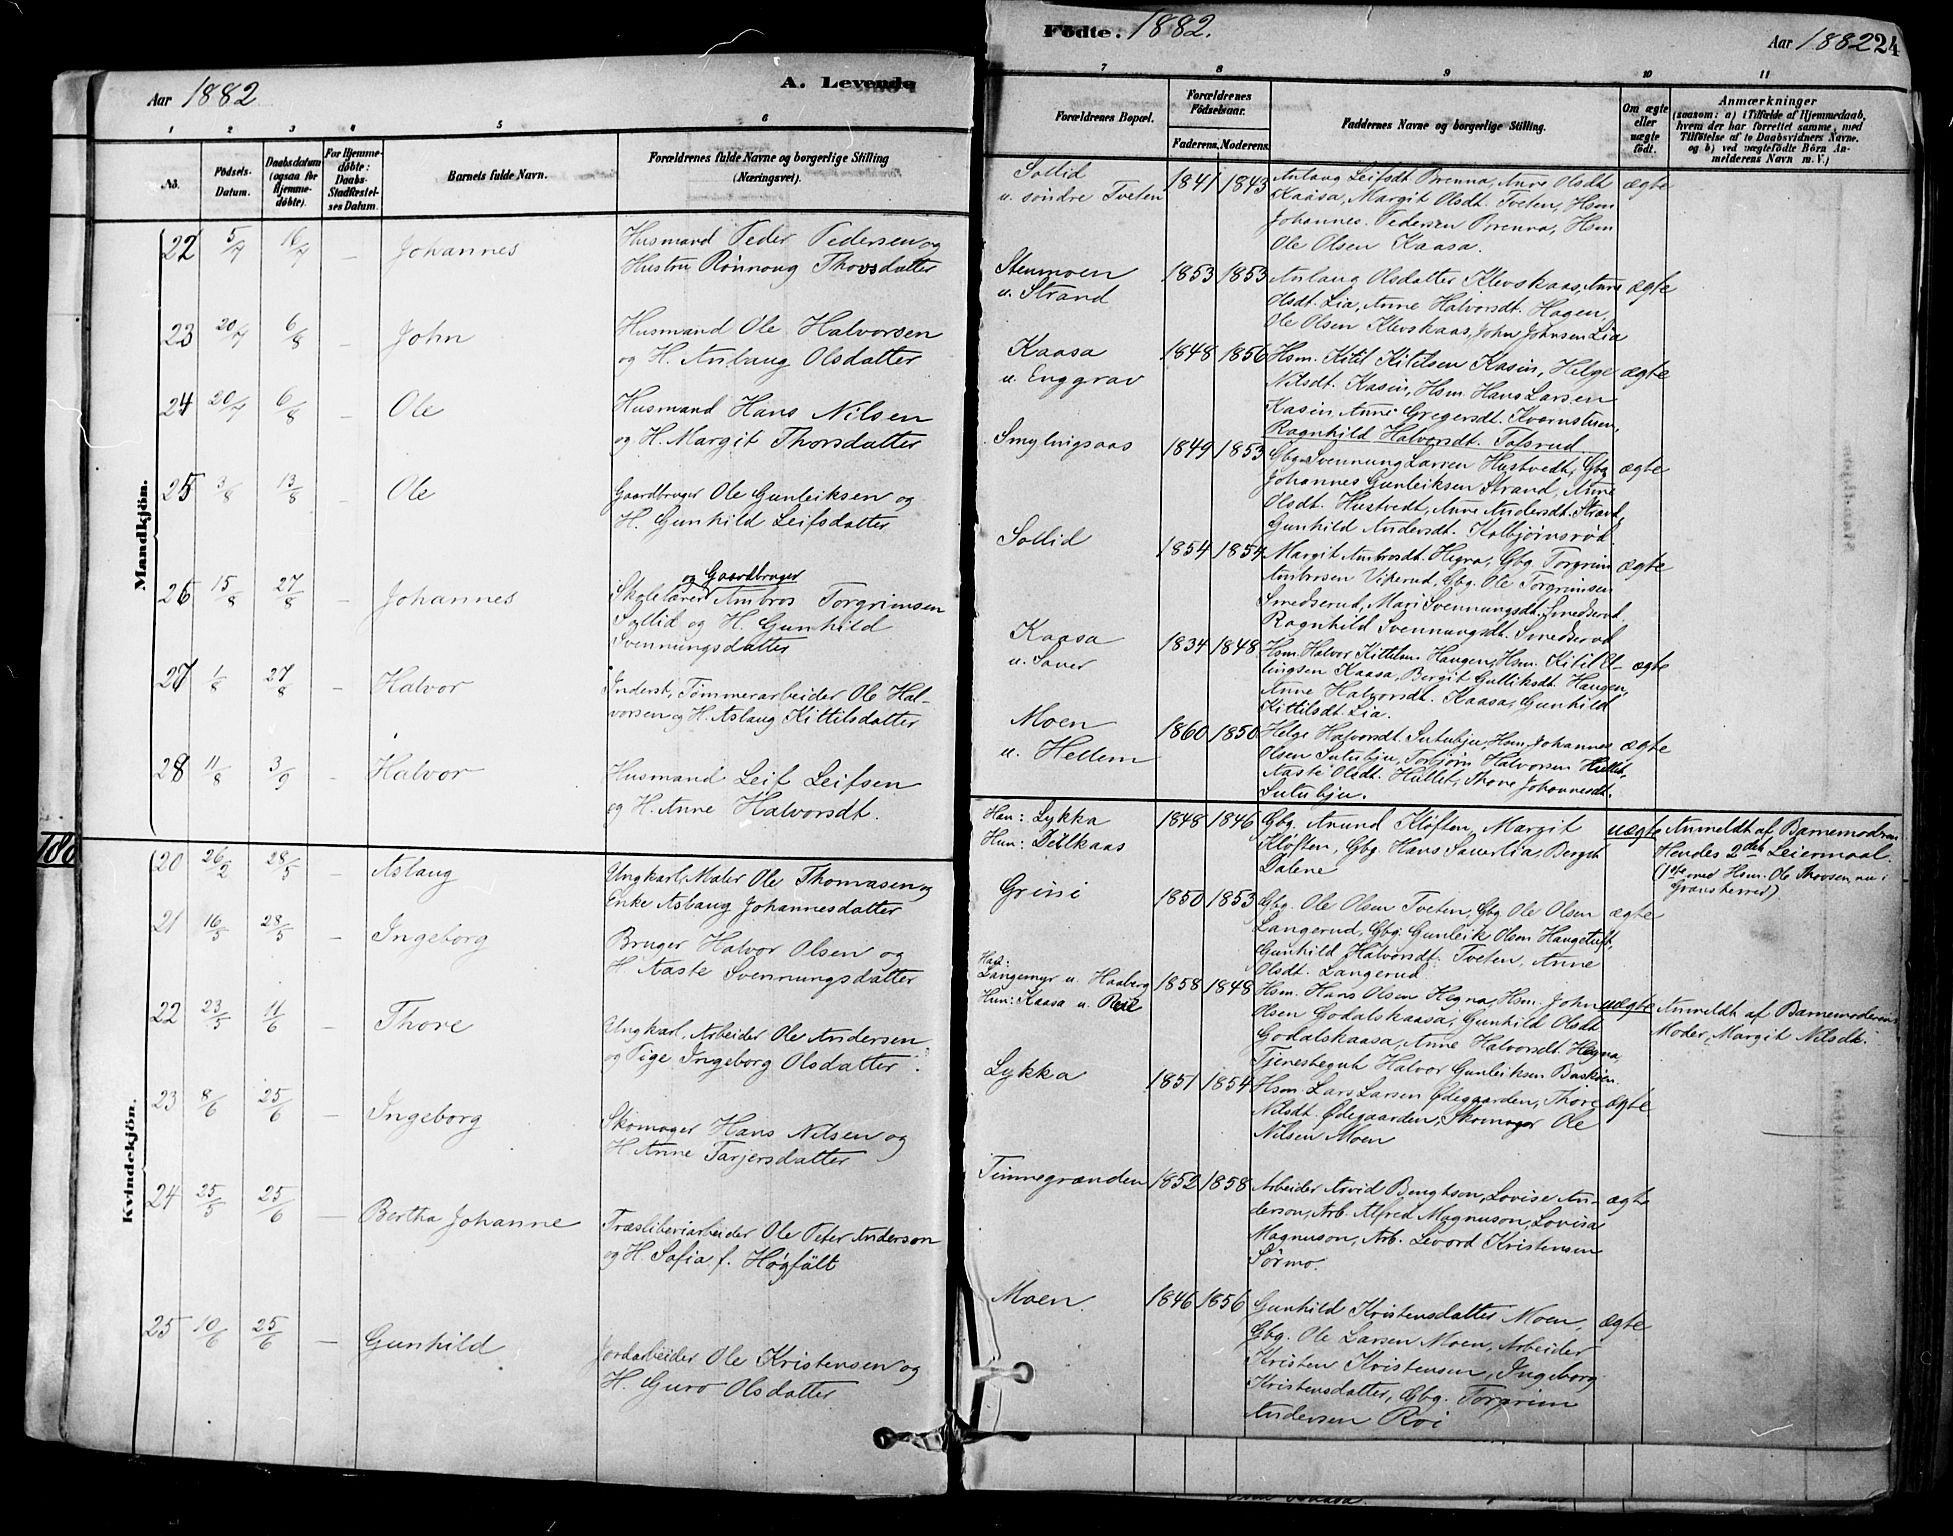 Aar 1882
A. Levende
1 2 3 4 5 6
No.
Födsels-
Datum.
Daabsdatum
(ogsaa for
Hjemme-
döbte).
For Hjemme-
döbte:
Daabs-
Stadfæstel-
ses Datum.
Barnets fulde Navn.
Forældrenes fulde Navne og borgerlige Stilling
(Næringsvei).
Mandkjön.
22 5/7 16/7 – Johannes
Husmand Peder Pedersen og
Hustru Rönnoug Thovsdatter
23 20/7 6/8 – John
Husmand Ole Halvorsen
og H. Anlaug Olsdatter
24 20/7 6/8 – Ole
Husmand Hans Nilsen
og H. Margit Thorsdatter
25 3/8 13/8 – Ole
Gaardbruger Ole Gunleiksen og
H. Gunhild Leifsdatter
26 15/8 27/8 – Johannes
og Gaardbruger
Skolelærer Ambros Torgrimsen
Sollid og H. Gunhild
Svennungsdatter
27 1/8 27/8 – Halvor
Inderst, Tömmerarbeider Ole Hal-
vorsen og H. Aslaug Kittilsdatter
28 11/8 3/9 – Halvor
Husmand Leif Leifsen
og H. Anne Halvorsdt.
Kvindekjön.
20 26/2 28/5 – Aslaug
Ungkarl, Maler Ole Thomasen og
Enke Aslaug Johannesdatter
21 16/5 28/5 – Ingeborg
Bruger Halvor Olsen og
H. Aaste Svennungsdatter
22 23/5 11/6 – Thore
Ungkarl, Arbeider Ole Andersen
og Pige Ingeborg Olsdatter
23 8/6 25/6 – Ingeborg
Skomager Hans Nilsen og
H. Anne Tarjersdatter
24 25/5 25/6 – Bertha Johanne
Træsliberiarbeider Ole Peter Anderson
og H. Sofia f. Högfält
25 10/6 25/6 – Gunhild
Jordarbeider Ole Kristensen og
H. Guro Olsdatter
Födte. 1882.
Aar 1882 24
7 8 9 10 11
Forældrenes Bopæl.
Forældrenes
Födselsaar.
Faderens. Moderens.
Faddernes Navne og borgerlige Stilling.
Om ægte
eller
uægte
födt.
Anmærkninger
(saasom: a) i Tilfælde af Hjemmedaab,
hvem der har forrettet samme, med
Tilföielse af to Daabsvidners Navne.
og b) ved uægtefödte Börn An-
melderens Navn m. V.)
Sollid
u. söndre Tveten
1841 1843
Anlaug Leifsdt. Brenna, Anne Olsdt.
Kaasa, Margit Olsdt. Tveten, Hsm.
Johannes Pedersen Brenna, Hsm.
Ole Olsen Kaasa.
ægte
Stenmoen
u. Strand
1853 1853
Anlaug Olsdatter Klevskaas, Anne
Olsdt. Lia, Anne Halvorsdt. Hagen,
Ole Olsen Klevskaas, John Johnsen Lia
ægte
Kaasa
u. Enggrav
1848 1856
Hsm. Kitil Kitilsen Kasin, Helge
Nilsdt. Kasin, Hsm. Hans Larsen
Kasin, Anne Gregersdt. Kvernstuen,
Ragnhild Halvorsdt. Tolsrud
ægte
Smylingsaas
1849 1853
Gbg. Svennung Larsen Hustvedt, Gbg.
Johannes Gunleiksen Strand, Anne
Olsdt. Hustvedt, Anne Andersdt. Strand,
Gunhild Andersdt. Kolbjörnsröd.
ægte
Sollid
1854 1854
Margit Ambrosdt. Hegna, Gbg. Torgrim
Ambrosen Vikerud, Gbg. Ole Torgrimsen
Smedserud, Mari Svennungsdt. Smedserud,
Ragnhild Svennungsdt. Smedserud
ægte
Kaasa
u. Saner
1834 1848
Hsm. Halvor Kittilsen Haugen, Hsm. Kitil El-
lingsen Kaasa, Bergit Gulliksdt. Haugen,
Anne Halvorsdt. Kaasa, Gunhild
Kittilsdt. Lia.
ægte
Moen
u. Hellem
1860 1850
Helge Halvorsdt. Sutubju, Hsm. Johannes
Olsen Sutubju, Torbjörn Halvorsen Hullet,
Aaste Olsdt. Hullet, Thore Johannesdt.
Sutubju.
ægte
Han: Lykka
Hun: Detlkaas
1848 1846
Gbg. Anund Klöften, Margit
Klöften, Gbg. Hans Sauerlia, Bergit
Dalene
uægte
Anmeldt af Barnemodren
Hendes 2det Leiermaal.
(1ste med Hsm. Ole Thovsen, nu i
Gransherred)
Grini
1850 1853
Gbg. Ole Olsen Tveten, Gbg. Ole Olsen
Langerud, Gbg. Gunleik Olsen Haugetuft,
Gunhild Halvorsdt. Tveten, Anne
Olsdt. Langerud
ægte
Han:
Langemyr u. Haaberg
Hun: Kaasa u. Roe
1858 1848
Hsm. Hans Olsen Hegna, Hsm. John
Olsen Godalskaasa, Gunhild Olsdt
Godalskaasa, Anne Halvorsdt. Hegna,
Tjenestegut Halvor Gunleiksen Baskin
uægte
Anmeldt af Barnemoderens
Moder, Margit Nilsdt.
Lykka
1851 1854
Hsm. Lars Larsen Ödegaarden, Thore
Nilsdt. Ödegaarden, Skomager Ole
Nilsen Moen
ægte
Tinnegranden
1852 1858
Arbeider Arvid Bengtson, Lovise An-
derson, Arb. Alfred Magnuson, Lovisa
Magnuson, Arb. Levord Kristensen
Sörmo.
ægte
Moen.
1846 1856
Gunhild Kristensdatter Moen,
Gbg. Ole Larsen Moen, Arbeider
Kristen Kristensen, Ingeborg
Kristensdatter, Gbg. Torgrim
Andersen Roi
ægte